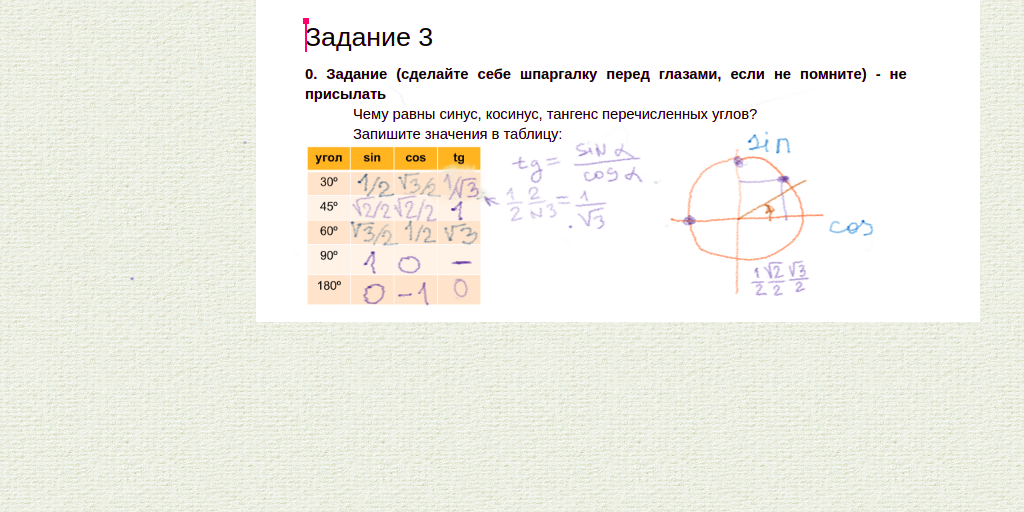 Задание 3
0. Задание (сделайте себе шпаргалку перед глазами, если не помните) - не
присылать
Чему равны синус, косинус, тангенс перечисленных углов?
Запишите значения в таблицу:
угол sin cos tg
30º 1/2 √3/2 1/√3
45º √2/2 √2/2 1
60º √3/2 1/2 √3
90º 1 0 —
180º 0 -1 0
tg = sin α / cos α
1/2 2/√3 = 1/√3
sin
cos
1/2 √2/2 √3/2